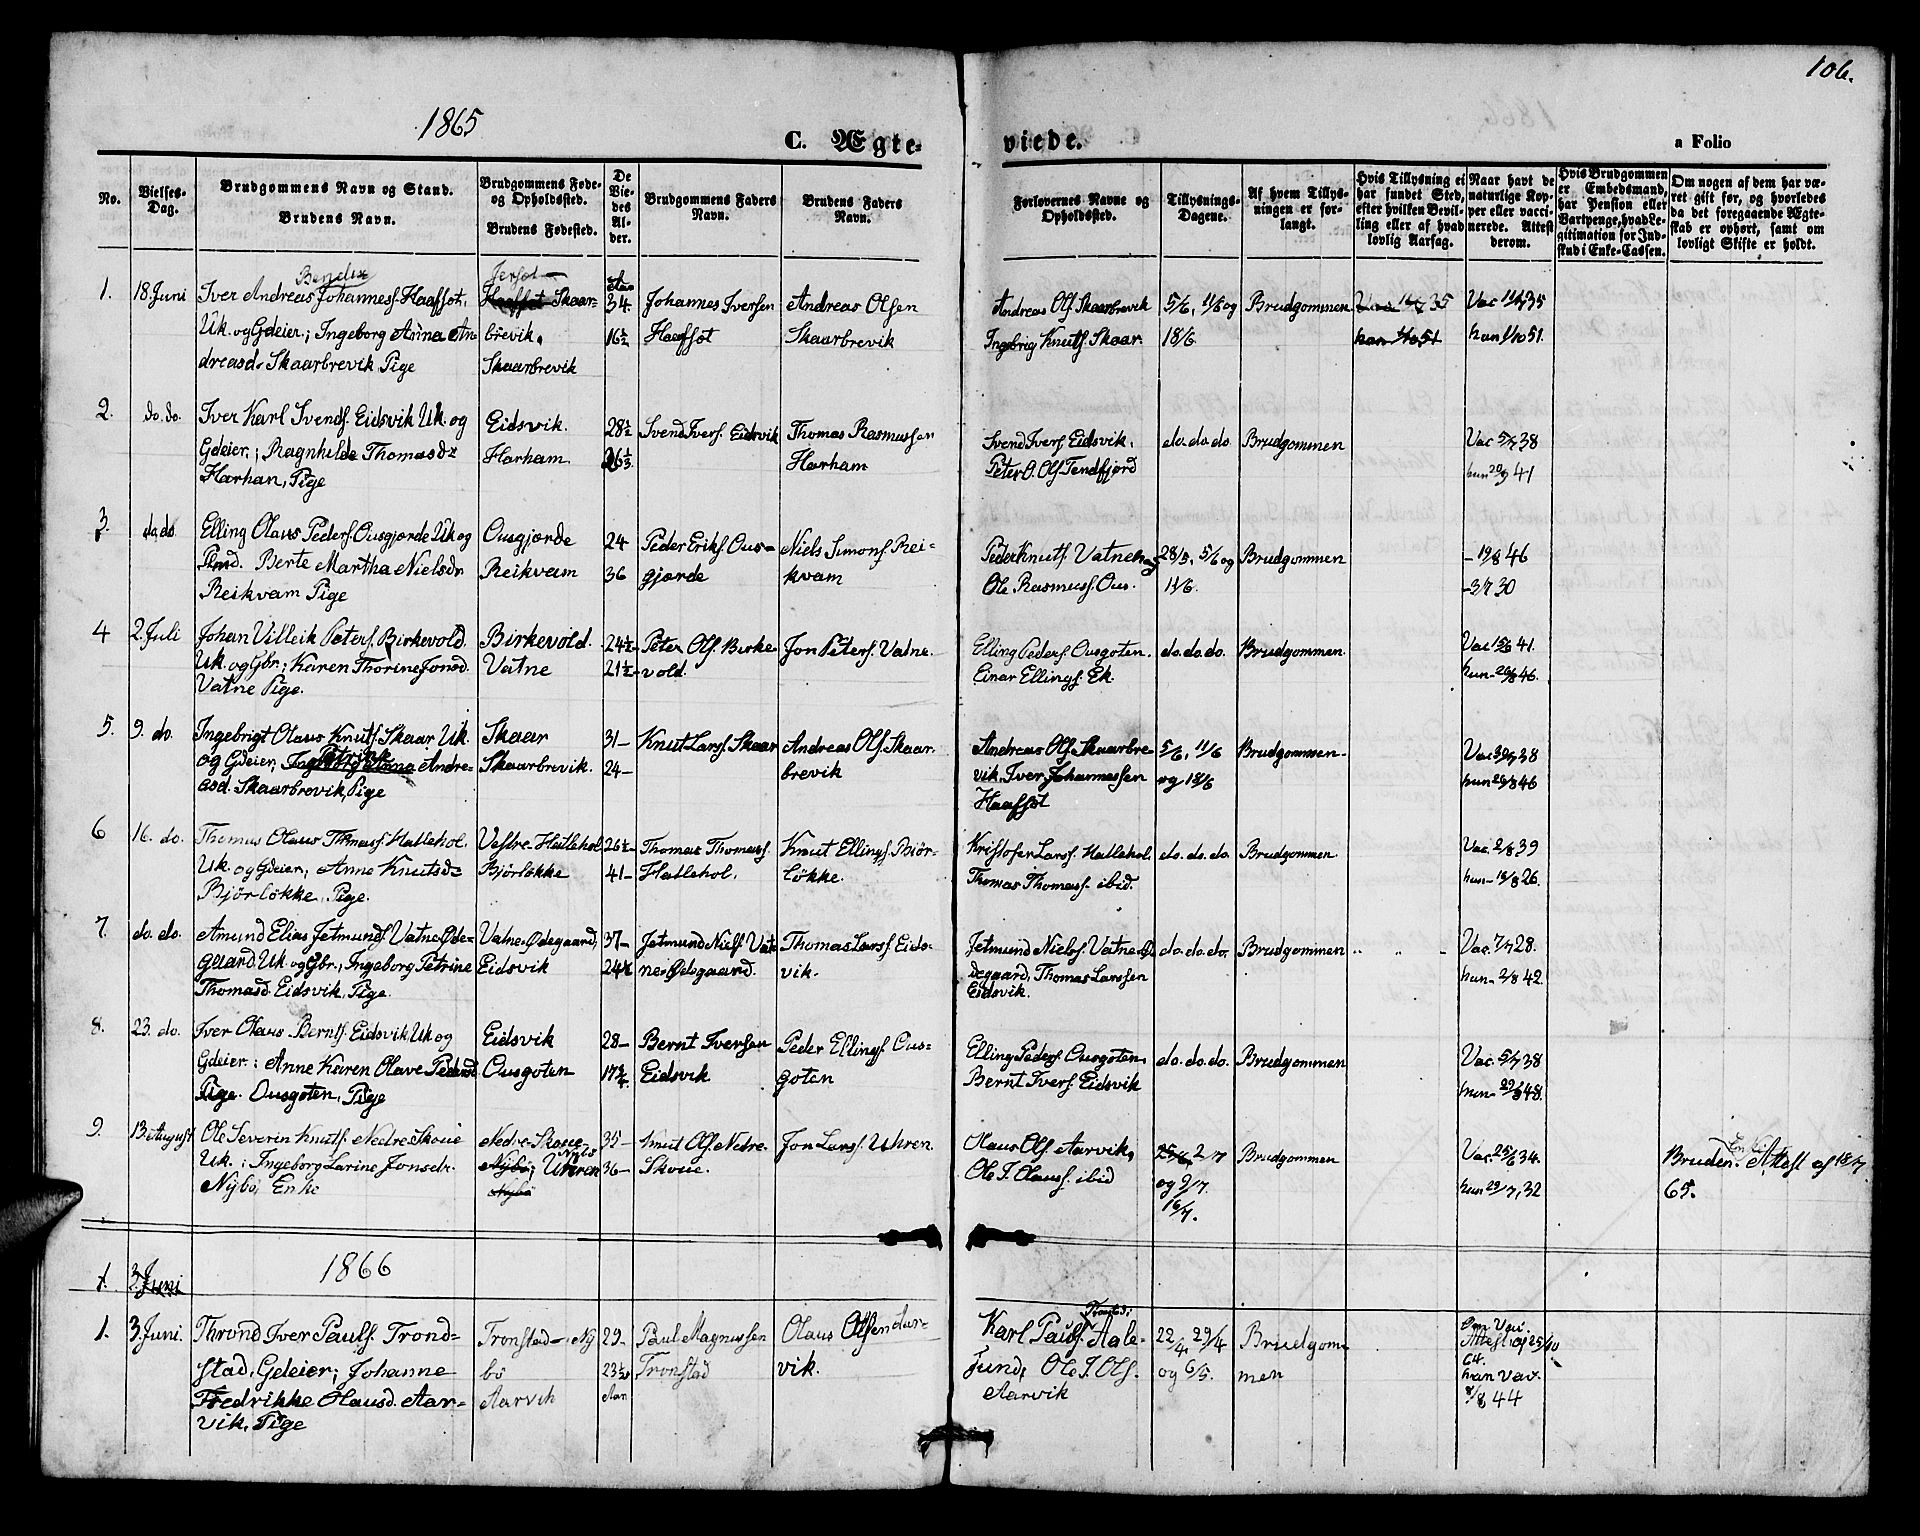 106.
1865
C. Ægte-
viede.
a Folio
No.
Vielses-
Dag.
Brudgommens Navn og Stand.
Brudens Navn.
Brudgommens Føde-
og Opholdssted.
Brudens Fødested.
De
Vie-
des
Al-
der.
Brudgommens Faders
Navn.
Brudens Faders
Navn.
Forlovernes Navne og
Opholdssted.
Tillysnings-
Dagene.
Af hvem Tillys-
ningen er for-
langt.
Hvis Tillysning ei
har fundet Sted,
efter hvilken Bevil-
ling eller af hvad
lovlig Aarsag.
Naar havt de
naturlige Kop-
per eller vacci-
nerede. Attest
derom.
Hvis Brudgommen
er Embedsmand,
har Pension eller
Vartpenge, hvad Le-
gitimation for Ind-
skud i Enke-Cassen.
Om nogen af dem har væ-
ret gift før, og hvorledes
da det foregaaende Ægte-
skab er ophørt, samt om
lovligt Skifte er holdt.
1.
18. Juni
Iver Andreas Johannesf. Haafsot,
Uk. og Gdeier; Ingeborg Anna An
dreasd. Skaarbrevik Pige
Haafsot Skaar-
brevik.
Skaarbrevik
34
16½
Johannes Iversen
Haafsot
Andreas Olsen
Skaarbrevik
Andreas Olf. Skaarbrevik
Ingebrig Knutf. Skaar
5/6, 11/6 og
18/6
Brudgommen
Vac 11/7 35
hun 1/10 51.
2.
do. do.
Iver Karl Svendf. Eidsvik Uk. og
Gdeier; Ragnhilde Thomasd.
Harhan, Pige
Eidsvik.
Harham
28½
26⅓
Svend Iverf. Eidsvik
Thomas Rasmussen
Harham
Svend Iverf. Eidsvik.
Peter O. Olf. Tendfjord
do. do. do.
Brudgommen
Vac 5/7 38
hun 20/9 41
3.
do. do.
Elling Olaus Pederf. Ousgjærde Uk og
Berte Martha Nielsdr
Reikvam Pige
Ousgjærde
Reikvam
24
36
Peder Erikf. Ous-
gjærde
Niels Simonf. Rei-
kvam
Peder Knutf. Vatne og
Ole Rasmusf. Ous.
28/5, 5/6 og
11/6.
Brudgommen
- 19/8 46
- 3/7 30
4
2. Juli
Johan Villeik Petersf. Birkevold.
Uk. og Gbr.; Karen Thorine Jonsd.
Vatne Pige.
Birkevold.
Vatne
24½
21½
Peter Olf. Birke
vold.
Jon Petersf. Vatne.
Elling Pederf. Ousgoten.
Einar Ellingf. Ek.
do. do. do.
Brudgommen.
Vac 15/6 41.
hun - 26/8 46.
5.
9. do.
Ingebrigt Olaus Knutf. Skaar Uk.
og Gdeier, Ingeborg Anna Andre-
asd. Skaarbrevik, Pige
Skaar
Skaarbrevik.
31-
24-
Knut Larsf. Skaar
Andreas Olf. Skaar
brevik
Andreas Olf. Skaarbre-
vik, Iver Johannessen
Haafsot
5/6, 11/6
og 18/6
Brudgommen.
Vac 30/7 38
hun 26/8 46
6
16. do.
Thomas Olaus Thomasf. Hatlehol.
Uk. og Gdeier; Anne Knutsd.
Bjørløkke, Pige.
Vestre Hatlehol
Bjørløkke
26½-
41-
Thomas Thomasf.
Hatlehol.
Knut Ellingf. Bjør-
løkke.
Kristofer Larsf. Hatlehol.
Thomas Thomasf. ibid.
do. do. do.
Brudgommen
Vac. 2/8 39
hun - 18/8 26.
7.
do. do.
Amund Elias Jetmundf. Vatne Øde-
gaard. Uk. og Gbr., Ingeborg Petrine
Thomasd. Eidsvik, Pige.
Vatne Ødegaard,
Eidsvik
37-
24½
Jetmund Nielf. Vat-
ne Ødegaard.
Thomas Larsf. Eids-
vik.
Jetmund Nielsf. Vatne Ø-
degaard, Thomas Larssen
Eidsvik.
do. do. do.
Brudgommen
Vac. 7/7 28.
hun - 2/8 42.
8.
23. do.
Iver Olaus Berntf. Eidsvik Uk og
Gdeier: Anne Karen Olave Pedersd
Pige. Ousgoten, Pige
Eidsvik
Ousgoten
28-
Bernt Iversen
Eidsvik
Peder Ellingf. Ous-
goten
Elling Pederf. Ousgoten.
Bernt Iverf. Eidsvik
do. do. do.
Brudgommen
Vac. 5/7 38
hun - 29/8 48.
9.
13. August
Ole Severin Knutf. Nedre Skoue
Uk.; Ingeborg Larine Jonsdr.
Nybø, Enke
Nedre Skoue
Nybø, Uhren
Nybø
35-
36-
Knut Olf. Nedre
Skoue.
Jon Larsf. Uhren.
Olaus Olf. Aarvik,
Ole J. Olausf. ibid
25/6, 2/7
og 9/7.
16/7.
Brudgommen
Vac. 25/6 34.
hun 29/7, 32
Bruden. Attest af 18/7
65.
1866
1.
3. Juni
1.
3. Juni.
Thrond Iver Paulf. Trond-
stad, Gdeier; Johanne
Fredrikke Olausd. Aar-
vik, Pige
Tronstad, Ny
bø
Aarvik
29-
23½
Aar
Paul Magnussen
Tronstad
Olaus Olsen Aar-
vik.
Tronstad:
Karl Paulf. Aale-
sund, Ole J. Olf.
Aarvik
22/4, 29/4
og 6/5.
Brudgom
men
Om Vac.
Attest af 25/10
64.
han vac.
8/8 44